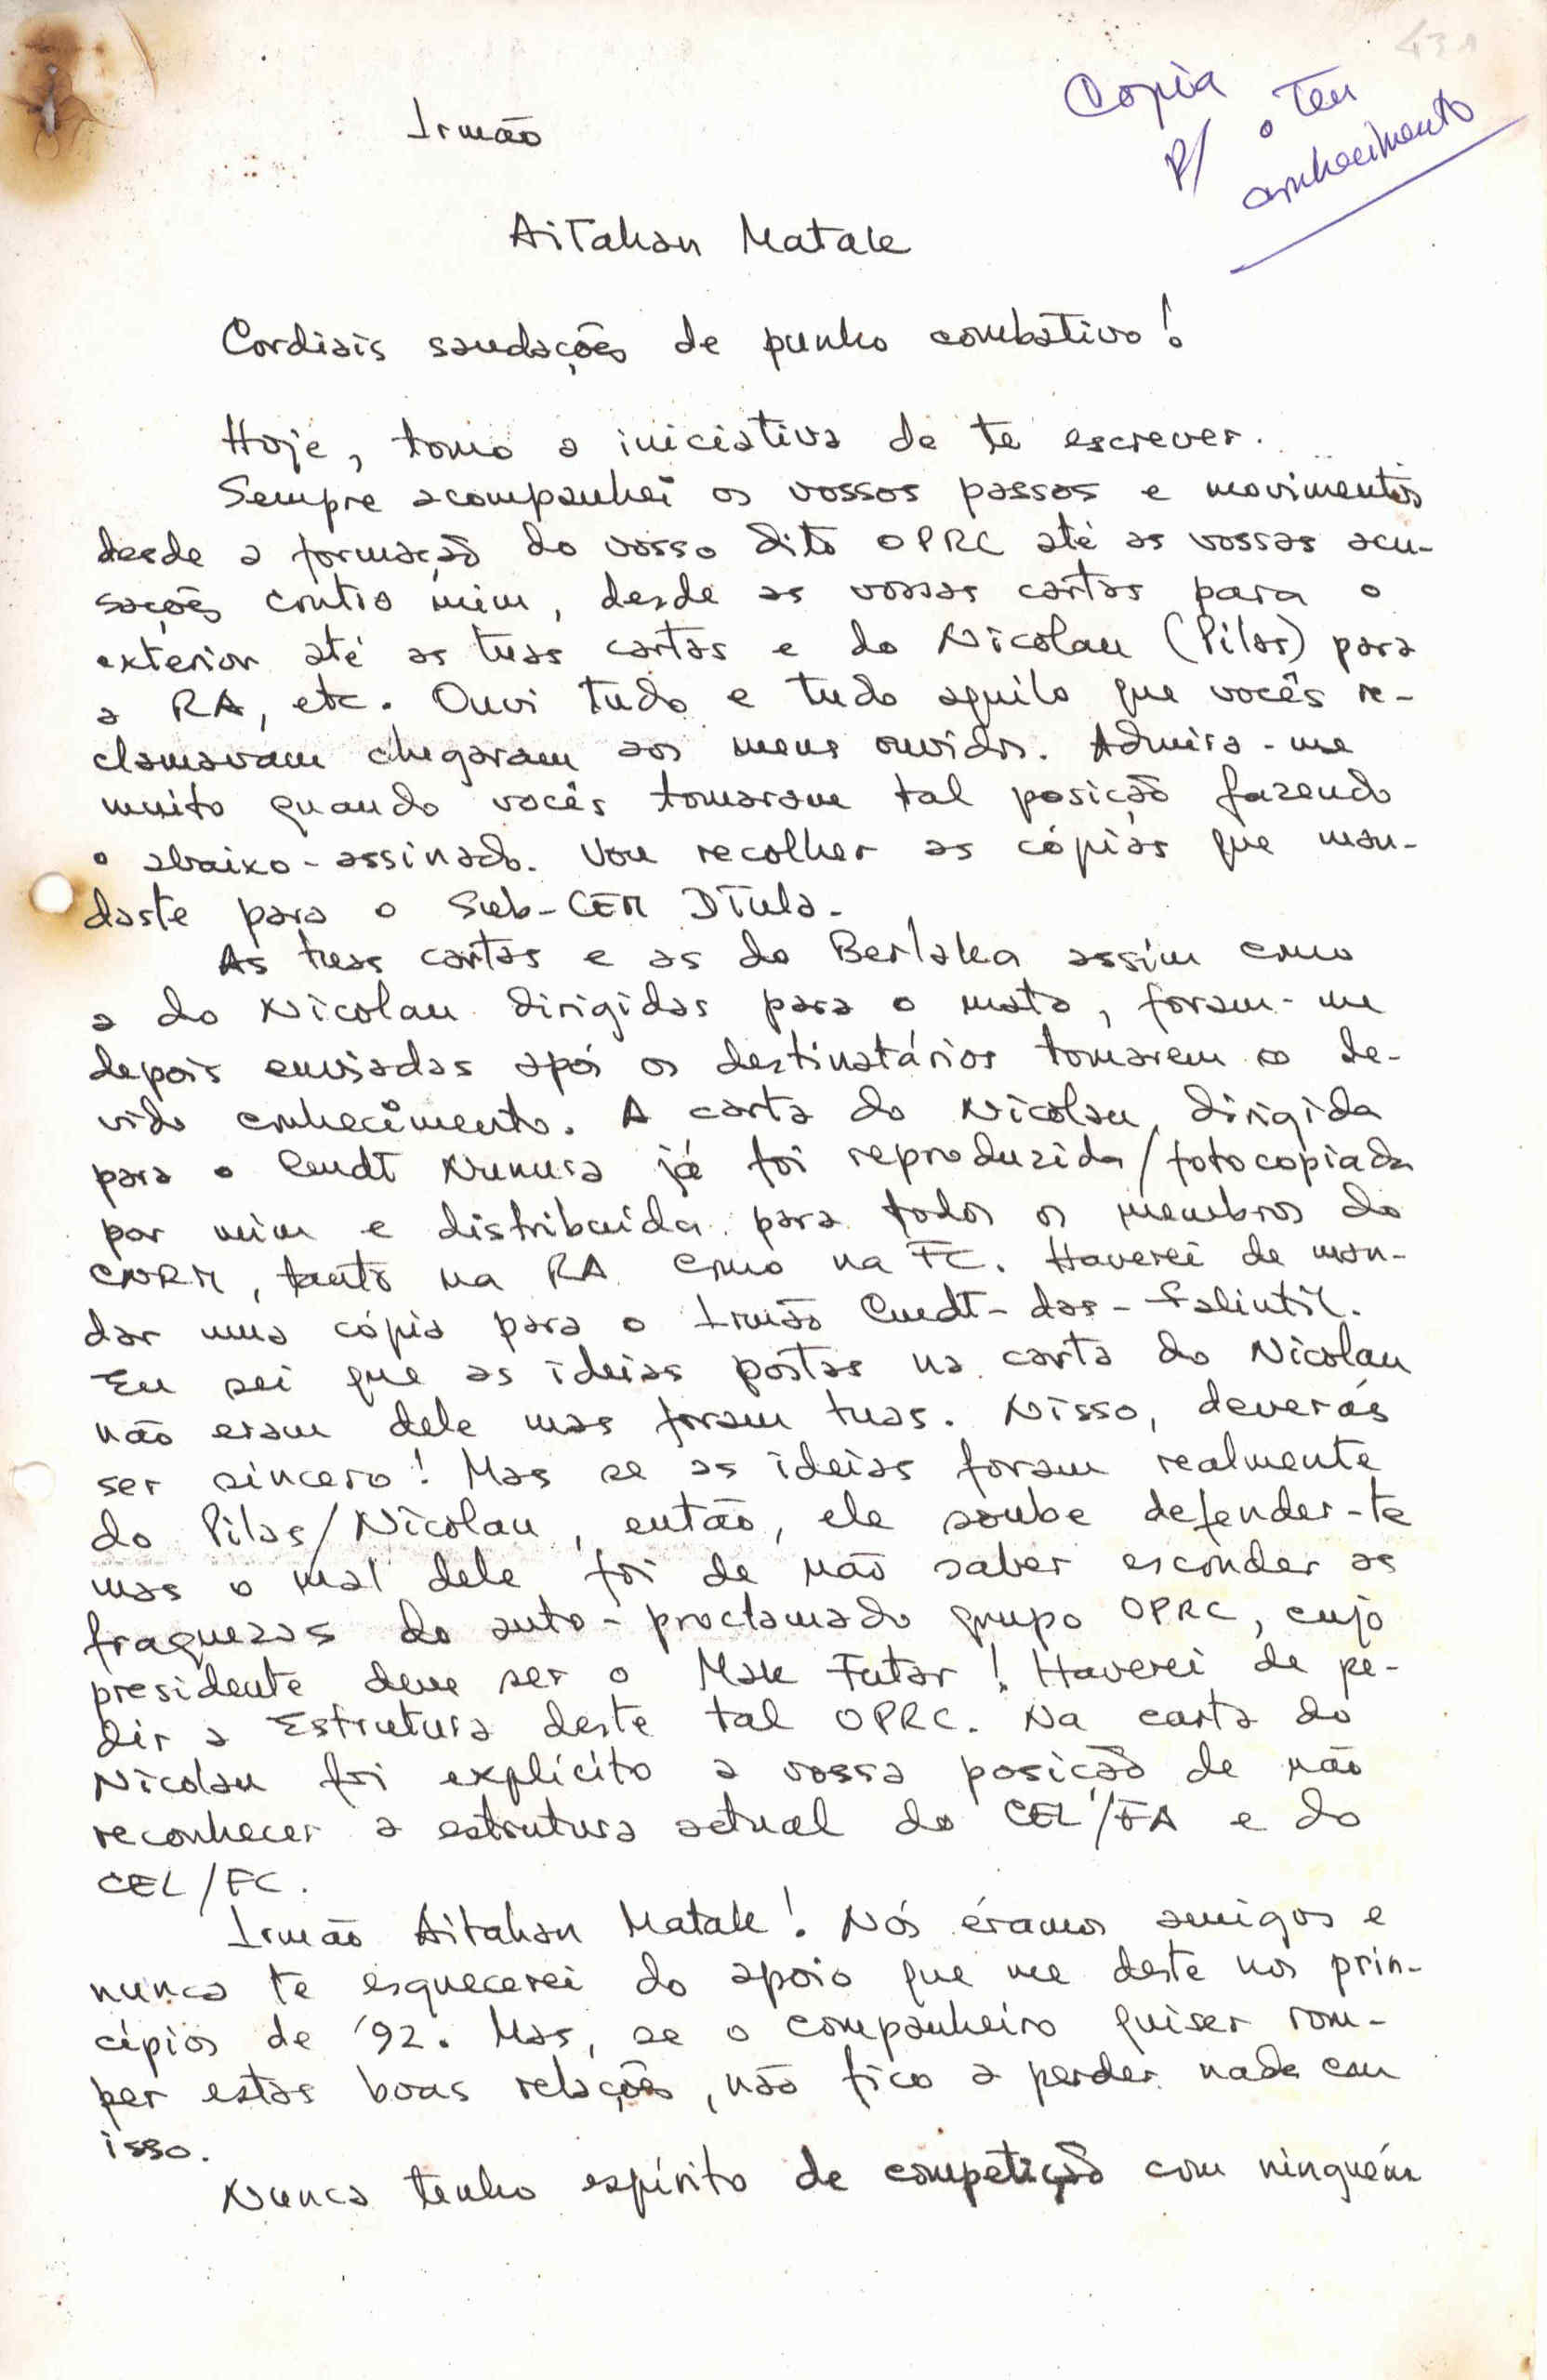 Copia
p/ o Teu
conhecimento
Irmão
Aitahan Matak
Cordiais saudações de punho combativo!
Hoje, tomo a iniciativa de te escrever.
Sempre acompanhei os vossos passos e movimentos
desde a formação do vosso dito OPRC até as vossas acu-
sações contra mim, desde as vossas cartas para o
exterior até as tuas cartas e do Nicolau (Pilas) para
a RA, etc. Ouvi tudo e tudo aquilo que vocês re-
clamavam chegaram aos meus ouvidos. Admira-me
muito quando vocês tomaram tal posição fazendo
o abaixo-assinado. Vou recolher as cópias que man-
daste para o Sub-CEM DTula.
As tuas cartas e as do Berlaka assim como
a do Nicolau dirigidas para o mato, foram-me
depois enviadas após os destinatários tomarem o de-
vido conhecimento. A carta do Nicolau, dirigida
para o Cmdt Nunura já foi reproduzida/fotocopiada
por mim e distribuida para todos os membros do
CNRM, tanto na RA como na FC. Haverei de man-
dar uma cópia para o Irmão Cmdt-das-Falintil.
Eu sei que as ideias postas na carta do Nicolau
não eram dele mas foram tuas. Nisso, deverás
ser sincero! Mas se as ideias foram realmente
do Pilas/Nicolau, então, ele soube defender-te
mas o mal dele foi de não saber esconder as
fraquezas do auto-proclamado grupo OPRC, cujo
presidente deve ser o Mak Fatar! Haverei de pe-
dir a Estrutura deste tal OPRC. Na carta do
Nicolau foi explícito a vossa posição de não
reconhecer a estrutura actual do CEL/FA e do
CEL/FC.
Irmão Aitahan Matak! Nós éramos amigos e
nunca te esquecerei do apoio que me deste nos prin-
cípios de '92. Mas, se o companheiro quiser rom-
per estas boas relações, não fico a perder nada em
isso.
Nunca tenho espírito de competição com ninguém